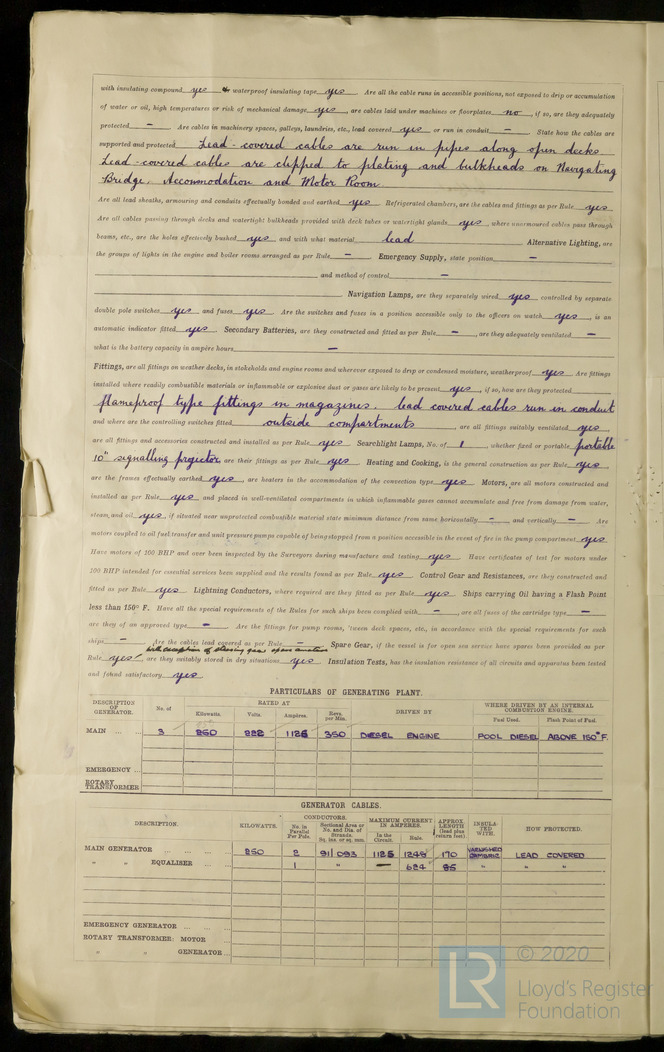 with insulating compound yes or waterproof insulating tape yes. Are all the cable runs in accessible positions, not exposed to drip or accumulation
of water or oil, high temperatures or risk of mechanical damage yes, are cables laid under machines or floorplates no, if so, are they adequately
protected –. Are cables in machinery spaces, galleys, laundries, etc., lead covered yes or run in conduit –. State how the cables are
supported and protected Lead-covered cables are run in pipes along open decks
Lead-covered cables are clipped to plating and bulkheads on Navigating
Bridge, Accommodation and Motor Room
Are all lead sheaths, armouring and conduits effectually bonded and earthed yes. Refrigerated chambers, are the cables and fittings as per Rule yes
Are all cables passing through decks and watertight bulkheads provided with deck tubes or watertight glands yes, where unarmoured cables pass through
beams, etc., are the holes effectively bushed yes and with what material lead Alternative Lighting, are
the groups of lights in the engine and boiler rooms arranged as per Rule – Emergency Supply, state position –
and method of control –
Navigation Lamps, are they separately wired yes controlled by separate
double pole switches yes and fuses yes. Are the switches and fuses in a position accessible only to the officers on watch yes, is an
automatic indicator fitted yes. Secondary Batteries, are they constructed and fitted as per Rule –, are they adequately ventilated –
what is the battery capacity in ampère hours –
Fittings, are all fittings on weather decks, in stokeholds and engine rooms and wherever exposed to drip or condensed moisture, weatherproof yes. Are fittings
installed where readily combustible materials or inflammable or explosive dust or gases are likely to be present yes, if so, how are they protected
flameproof type fittings in magazines. lead covered cables run in conduit
and where are the controlling switches fitted outside compartments, are all fittings suitably ventilated yes,
are all fittings and accessories constructed and installed as per Rule yes Searchlight Lamps, No. of 1, whether fixed or portable portable
10" signalling projector are their fittings as per Rule yes Heating and Cooking, is the general construction as per Rule yes,
are the frames effectually earthed yes, are heaters in the accommodation of the convection type yes. Motors, are all motors constructed and
installed as per Rule yes and placed in well-ventilated compartments in which inflammable gases cannot accumulate and free from damage from water,
steam and oil yes, if situated near unprotected combustible material state minimum distance from same horizontally – and vertically –. Are
motors coupled to oil fuel transfer and unit pressure pumps capable of being stopped from a position accessible in the event of fire in the pump compartment yes
Have motors of 100 BHP and over been inspected by the Surveyors during manufacture and testing yes. Have certificates of test for motors under
100 BHP intended for essential services been supplied and the results found as per Rule yes Control Gear and Resistances, are they constructed and
fitted as per Rule yes Lightning Conductors, where required are they fitted as per Rule yes Ships carrying Oil having a Flash Point
less than 150° F. Have all the special requirements of the Rules for such ships been complied with –, are all fuses of the cartridge type –
are they of an approved type – Are the fittings for pump rooms, 'tween deck spaces, etc., in accordance with the special requirements for such
ships – Are the cables lead covered as per Rule – Spare Gear, if the vessel is for open sea service have spares been provided as per
with exception of steering gear spare armature
Rule yes, are they suitably stored in dry situations yes Insulation Tests, has the insulation resistance of all circuits and apparatus been tested
and found satisfactory yes
PARTICULARS OF GENERATING PLANT.
DESCRIPTION OF GENERATOR. No. of RATED AT Kilowatts. Volts. Ampères. Revs. per Min. DRIVEN BY WHERE DRIVEN BY AN INTERNAL COMBUSTION ENGINE. Fuel Used. Flash Point of Fuel.
MAIN ... ... 3 250 222 1125 350 DIESEL ENGINE POOL DIESEL ABOVE 150°F.
EMERGENCY ...
ROTARY TRANSFORMER
GENERATOR CABLES.
DESCRIPTION. KILOWATTS. CONDUCTORS. No. in Parallel Per Pole. Sectional Area or No. and Dia. of Strands. Sq. ins. or sq. mm. MAXIMUM CURRENT IN AMPERES. In the Circuit. Rule. APPROX. LENGTH (lead plus return feet) INSULATED WITH. HOW PROTECTED.
MAIN GENERATOR ... ... ... 250 2 91/093 1125 1248 170 VARNISHED CAMBRIC LEAD COVERED
" " EQUALISER ... 1 " – 624 85 " " "
EMERGENCY GENERATOR ... ... ...
ROTARY TRANSFORMER: MOTOR ...
" " GENERATOR ...
LR © 2020
Lloyd's Register
Foundation